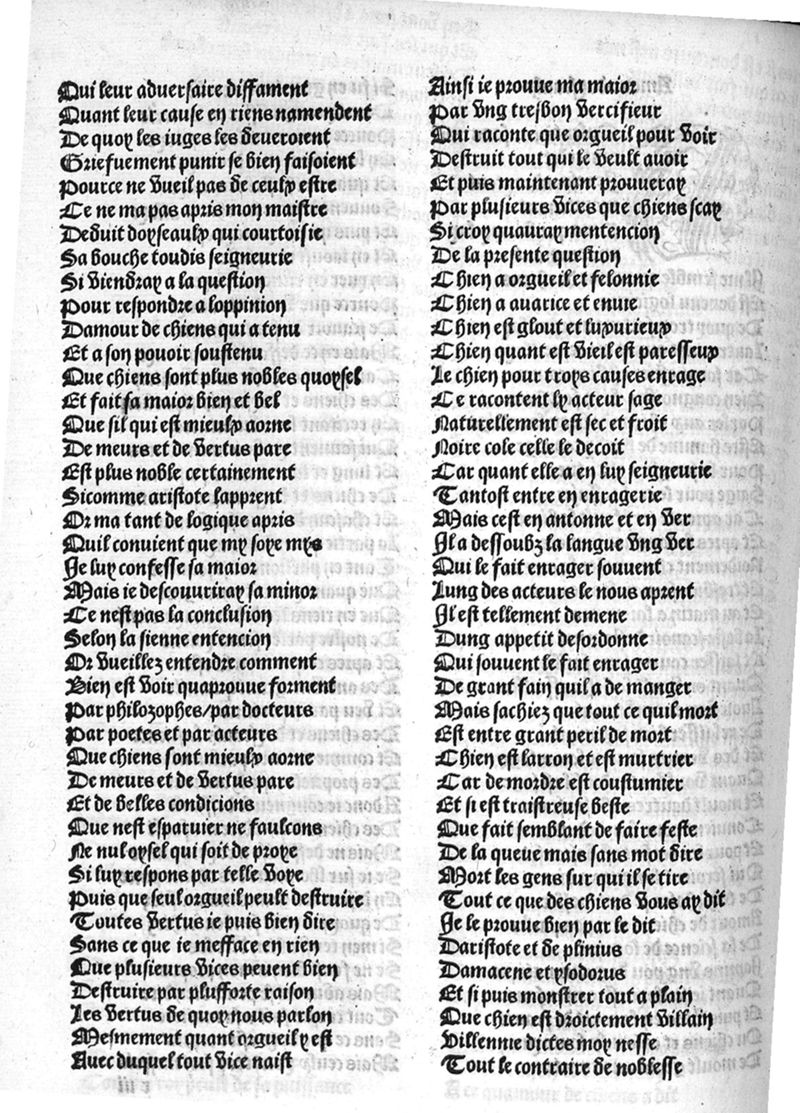 Qui leur adversaire diffament
Quant leur cause en riens namendent
De quoy les iuges les deveroient
Griefuement punir se bien faisoient
Pource ne vueil pas de ceulx estre
Ce ne ma pas apris mon maistre
Deduit doyseaulx qui courtoisie
Sa bouche toudis seigneurie
Si viendray a la question
Pour respondre a loppinion
Damour de chiens qui a tenu
Et a son pouoir soustenu
Que chiens sont plus nobles quoysel
Et fait sa maior bien et bel
Que sil qui est mieulx aorne
De meurs et de vertus pare
Est plus noble certainement
Sicomme aristote lapprent
Or ma tant de logique apris
Quil convient que my soye mys
Je luy confesse sa maior
Mais ie descouuriray sa minor
Ce nest pas la conclusion
Selon la sienne entencion
Or vueillez entendre comment
Bien est voir quaprouue forment
Par philozophes/par docteurs
Par poetes et par acteurs
Que chiens sont mieulx aorne
De meurs et de vertus pare
Et de belles condicions
Que nest esparuier ne faulcons
Ne nul oysel qui soit de proye
Si luy respons par telle voye
Puis que seul orgueil peult destruire
Toutes vertus ie puis bien dire
Sans ce que ie mefface en rien
Que plusieurs vices peuent bien
Destruire par plufforte raison
Les vertus de quoy nous parlon
Mesmement quant orgueil y est
Auec duquel tout vice naist
Ainsi ie prouue ma maior
Par vng tresbon vercifieur
Qui raconte que orgueil pour voir
Destruit tout qui le veult auoir
Et puis maintenant prouueray
Par plusieurs vices que chiens scay
Si croy quauray mentencion
De la presente question
Chien a orgueil et felonnie
Chien a auarice et enuie
Chien est glout et luxurieux
Chien quant est vieil est paresseux
Le chien pour troys causes enrage
Ce racontent ly acteur sage
Naturellement est sec et froit
Noire cole celle le decoit
Car quant elle a en luy seigneurie
Tantost entre en enragerie
Mais cest en antonne et en ver
Il a dessoubz la langue vng ver
Qui le fait enrager souuent
Lung des acteurs le nous aprent
Il est tellement demene
Dung appetit desordonne
Qui souuent le fait enrager
De grant fain quil a de manger
Mais sachiez que tout ce quil mort
Est entre grant peril de mort
Chien est larron et est murtrier
Car de mordre est coustumier
Et si est traistreuse beste
Que fait semblant de faire feste
De la queue mais sans mot dire
Mort les gens sur qui il se tire
Tout ce que des chiens vous ay dit
Je le prouue bien par le dit
Daristote et de plinius
Damacene et ysodorus
Et si puis monstrer tout a plain
Que chien est droictement villain
Villennie dictes moy nesse
Tout le contraire de noblesse